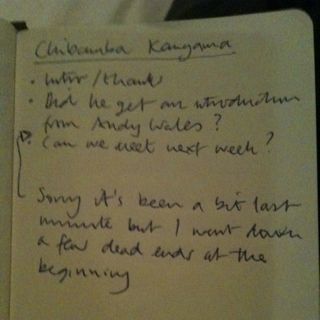 Chibamba Kangama
• Intro/thanks
• Did he get an introduction
from Andy Wales?
• Can we meet next week?
Sorry it's been a bit last
minute but I went down
a few dead ends at the
beginning